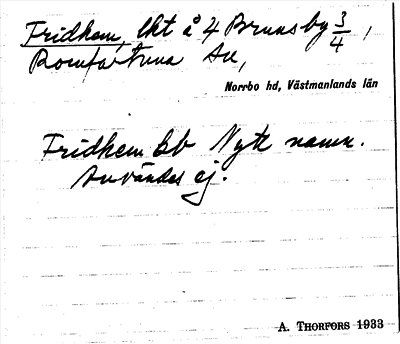 Fridhem, lht å 4 Brunsby 3/4,
Romfartuna sn,
Norrbo hd, Västmanlands län
Fridhem bb Nytt namn.
Användes ej.
A. THORFORS 1933